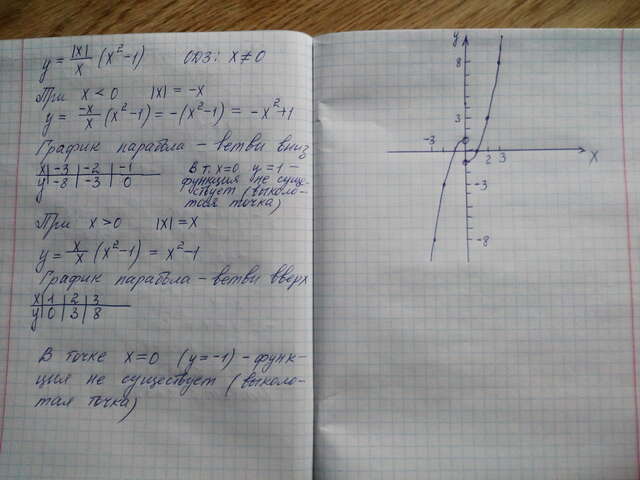 y = |x|/x (x²-1) ОДЗ: x≠0
При x<0 |x| = -x
y = -x/x (x²-1) = -(x²-1) = -x²+1
График парабола - ветви вниз
x | -3 | -2 | -1
y | -8 | -3 | 0
В т. x=0 y=1 -
функция не суще-
ствует (выколо-
тая точка)
При x>0 |x|=x
y = x/x (x²-1) = x²-1
График парабола - ветви вверх
x | 1 | 2 | 3
y | 0 | 3 | 8
В точке x=0 (y=-1) - функ-
ция не существует (выколо-
тая точка)
y
8
3
-3
2 3
x
-3
-8